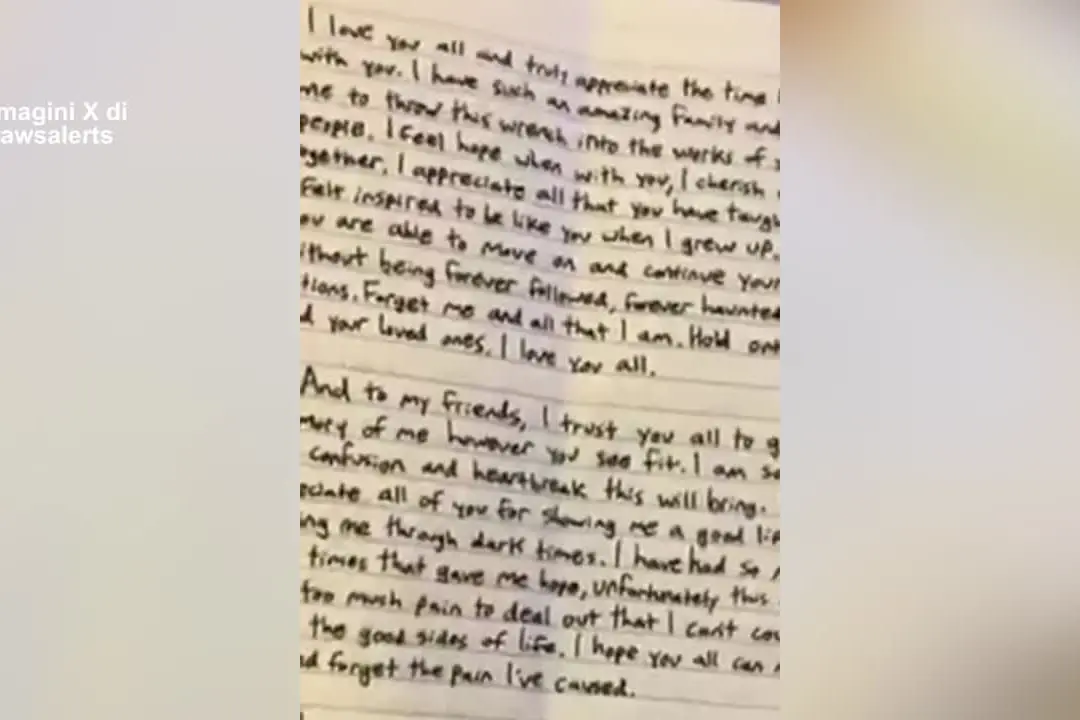 magini X di
awsalerts
I love you all and truly appreciate the time
with you. I have such an amazing family and
me to throw this wrench into the works of
people. I feel hope when with you, I cherish
ogether. I appreciate all that you have taugh
Felt inspired to be like you when I grew up.
ou are able to move on and continue your
ithout being forever followed, forever haunted
tions. Forget me and all that I am. Hold ont
d your loved ones. I love you all.
And to my friends, I trust you all to g
mory of me however you see fit. I am so
confusion and heartbreak this will bring.
eciate all of you for showing me a good lif
ing me through dark times. I have had so
times that gave me hope, unfortunately this
too mush pain to deal out that I can't cou
the good sides of life. I hope you all can
nd forget the pain I've caused.